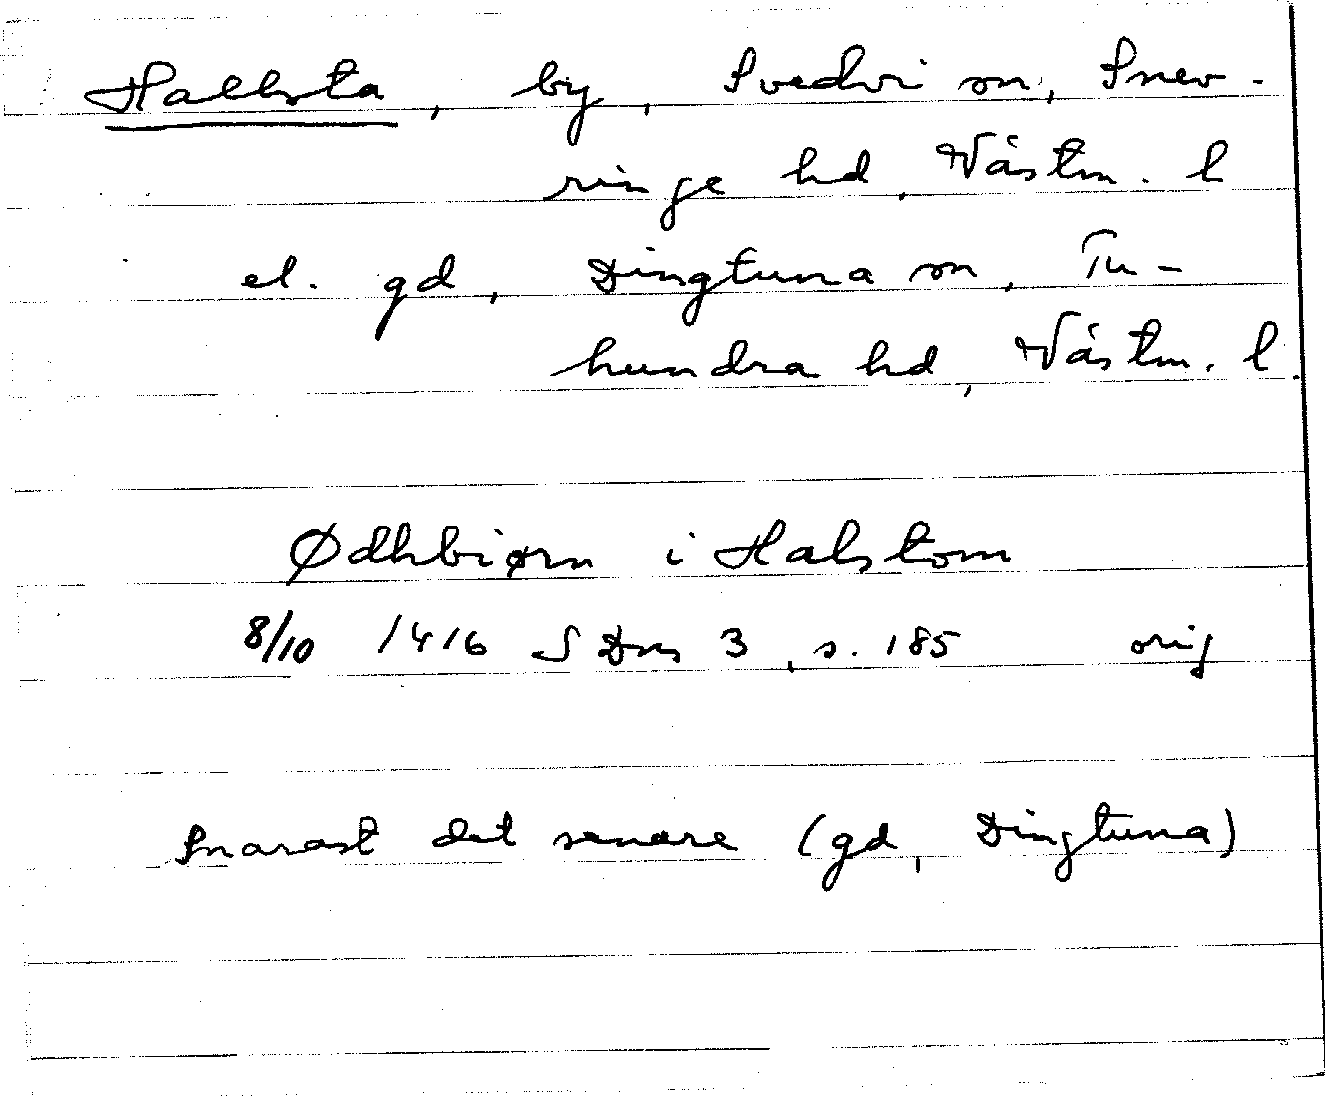 Hallsta, by, Svedvi sn, Snev-
ringe hd, Västm. l
el. gd, Dingtuna sn, Tu-
hundra hd, Västm. l.
Ødhbiørn i Halstom
8/10 1416 SDns 3, s. 185 orig
Snarast det senare (gd, Dingtuna)